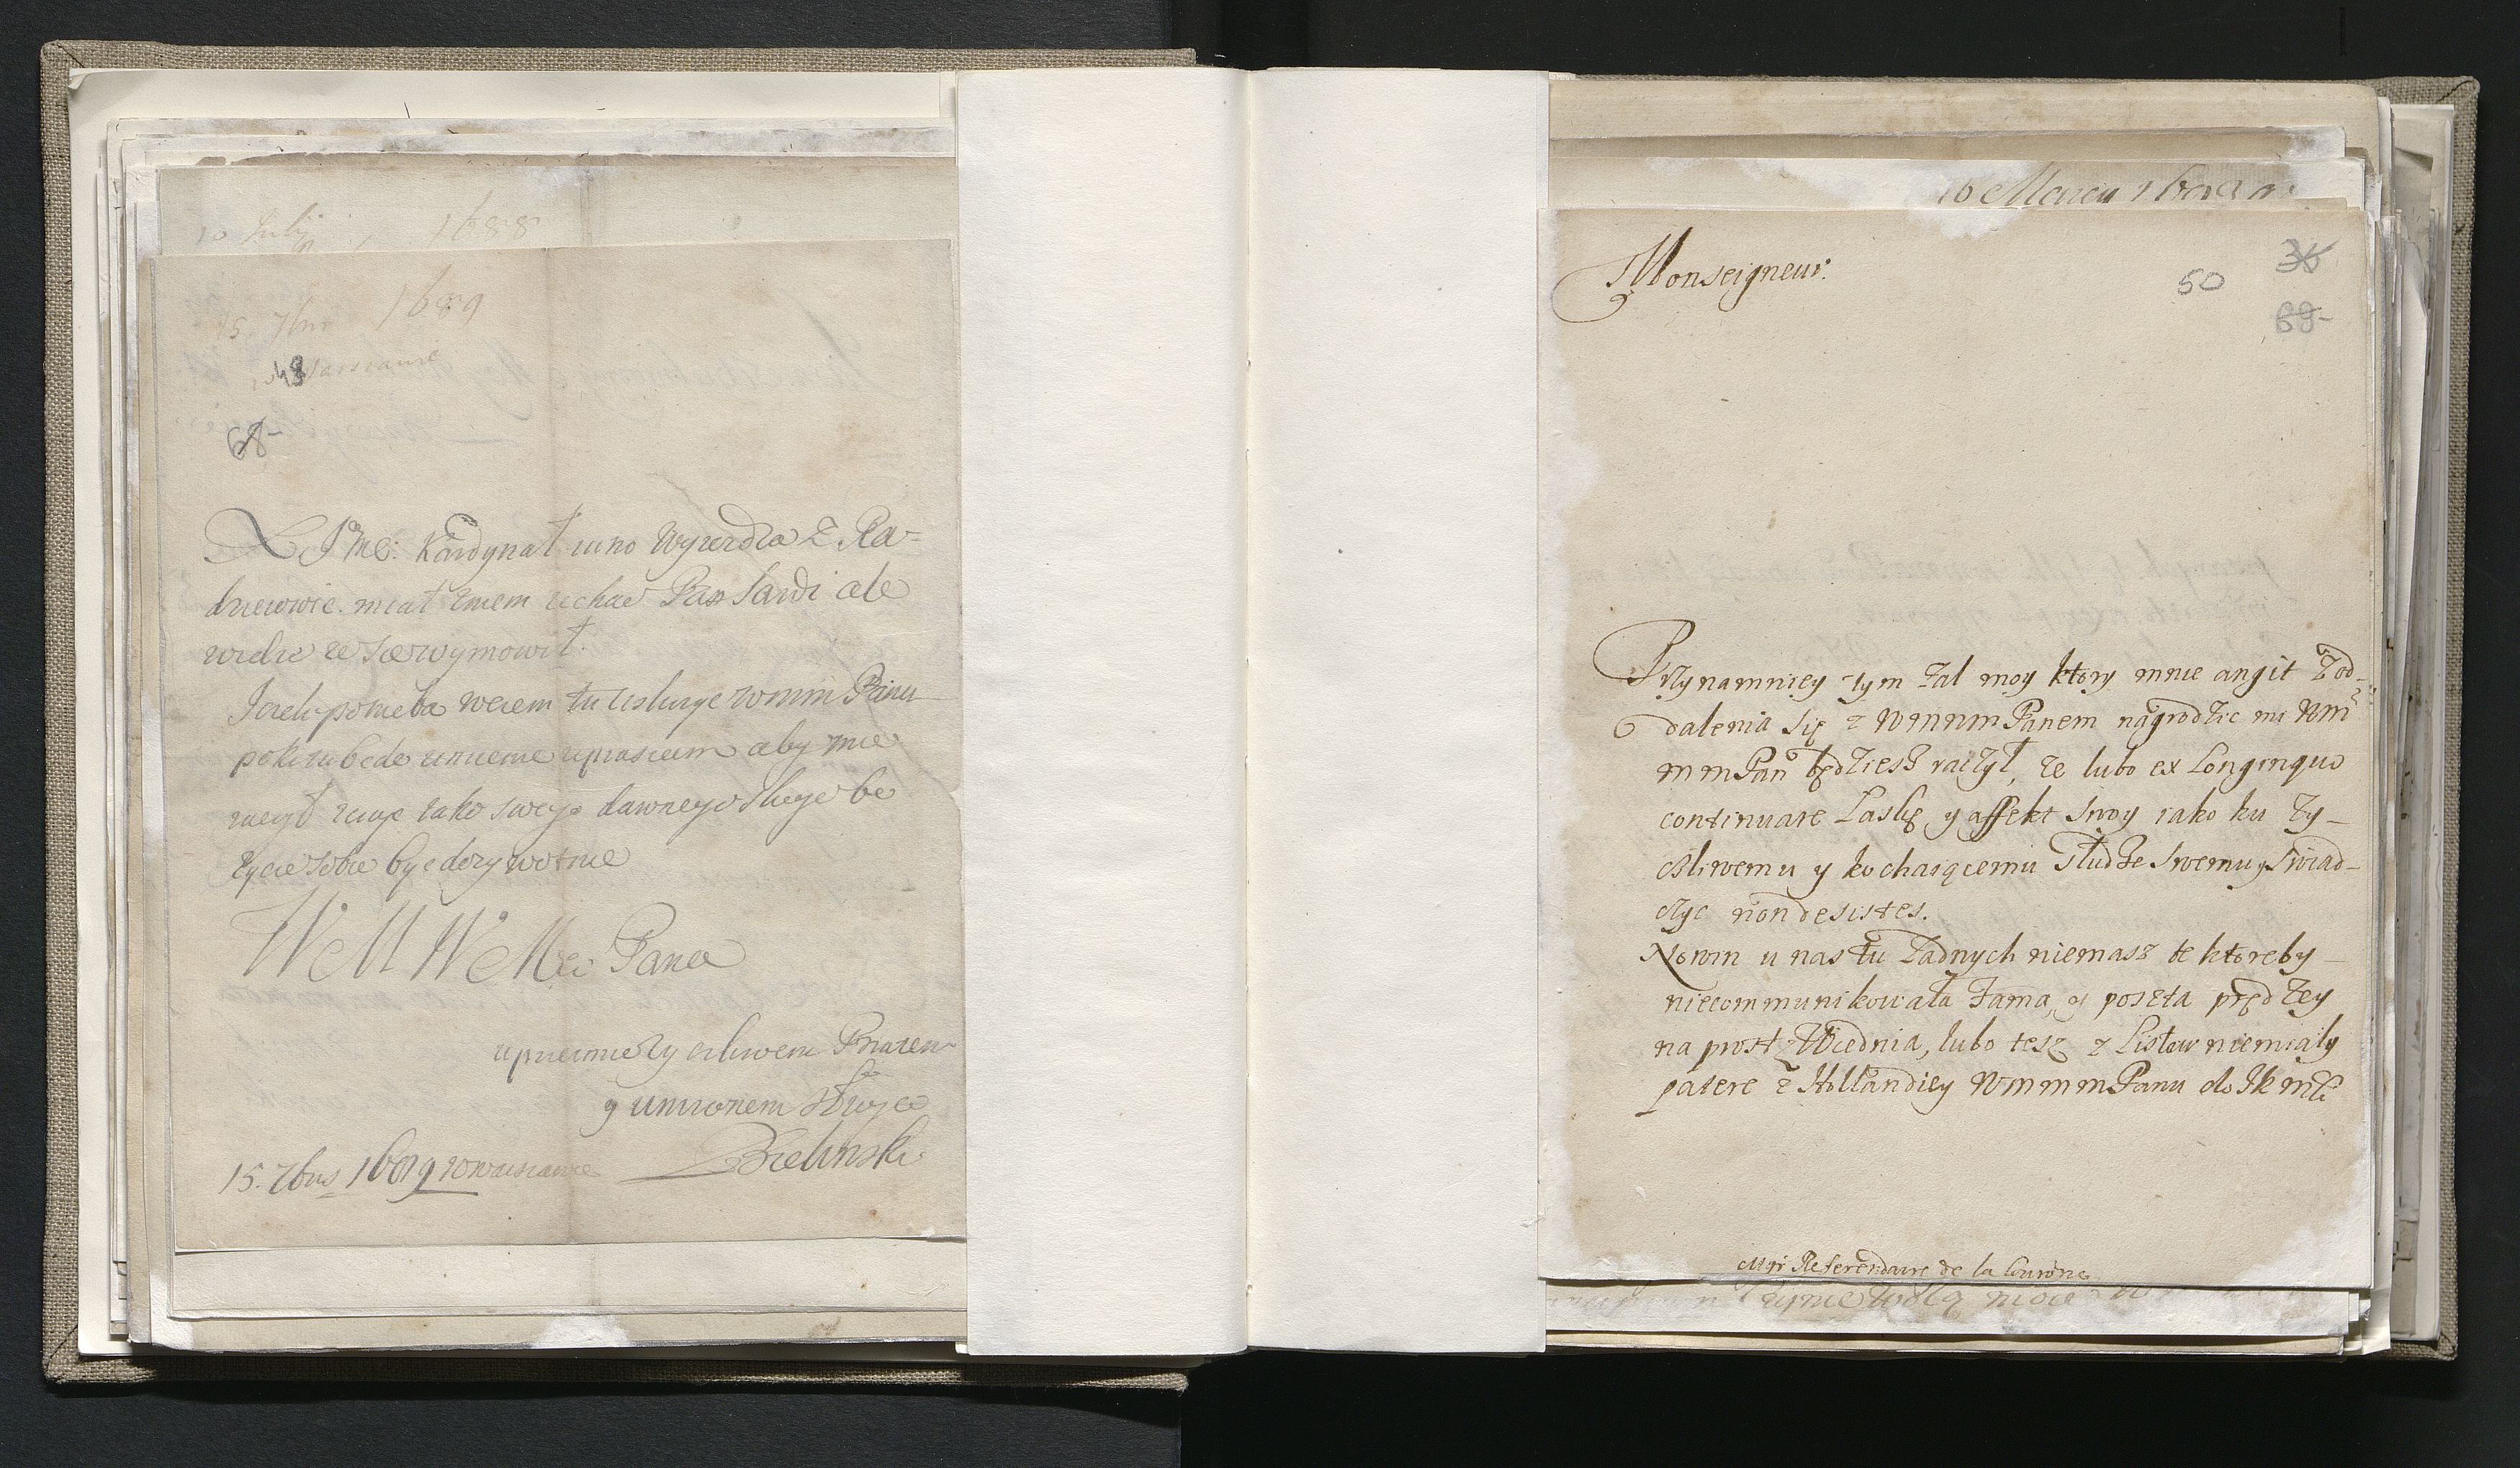 10 Julij 1688
15. 7bris 1689
w Warszawie
48
68
X JMć: Kardynał iutro wyiezdza z Ra-
dzieiowic. miał zniem iechac Pan Sardi ale
widzę ze sie wymowił.
Jezeli potrzeba wczem tu usługe wmm Panu
poki tu bede unizenie upraszam aby mie
raczył zazyc iako swego dawnego sługe bo
zycze sobie byc dozywotnie
WeMWeMci Pana
uprzeimie zyczliwem Bratem
y unizonem sługą
Bielinski
15. 7bris 1689 w Warszawie
10 Marca
Monseigneur.
50
36
69
Przynamniey tym zal moy ktory mnie angit z od-
dalenia się z WmmmPanem nagrodzic mi Wm
mmPan będziesz raczył, ze lubo ex Longinquo
continuare Łaskę y affekt swoy iako ku zy-
czliwemu y kochaiącemu słudze swemu swiad-
czyc non desistes.
Nowin u nas tu zadnych niemasz te ktoreby
niecommunikowała Fama, y poszta prędzey
na prost z Wiednia, lubo tesz z Listow niemiały
patere z Hollandiey WmmmPanu do Jk mći
Mgr Referendaire de la Couronne